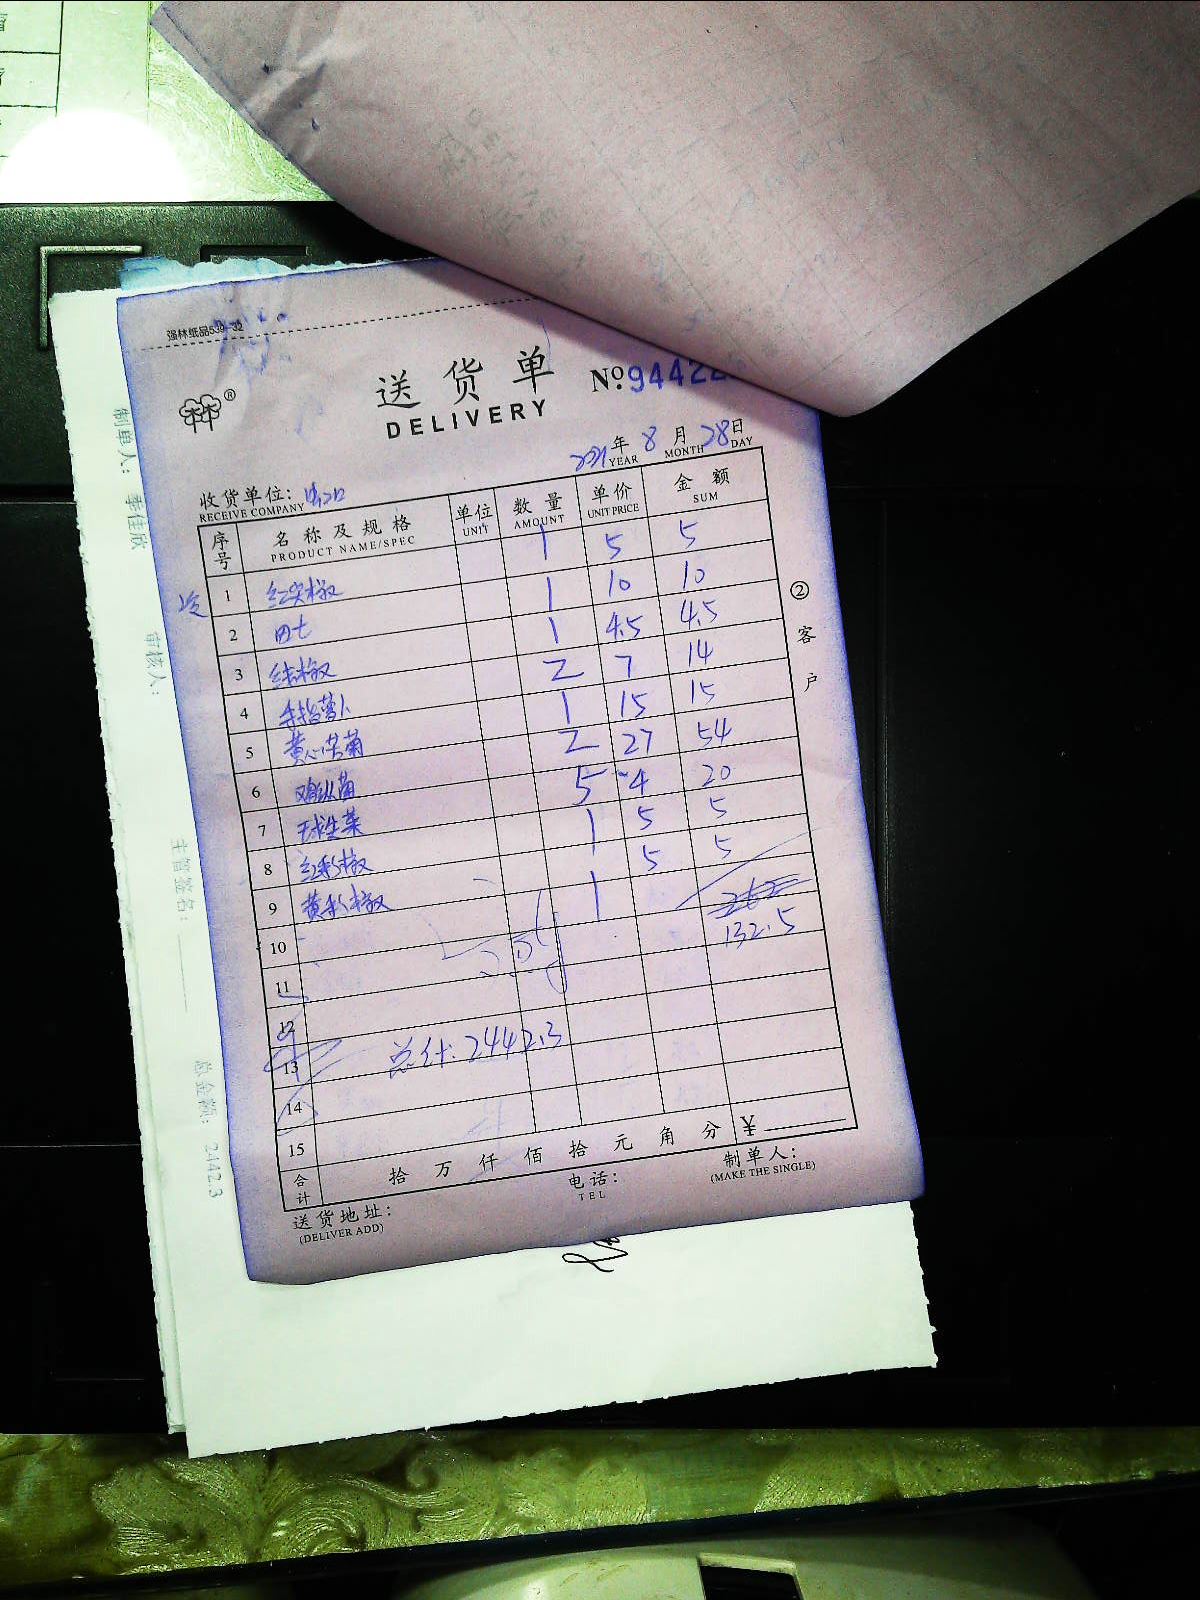 强林纸品539-32
送货单 No.94422
DELIVERY
2021年 8月 28日
YEAR MONTH DAY
收货单位:
RECEIVE COMPANY
序号 名称及规格 单位 数量 单价 金额
PRODUCT NAME/SPEC UNIT AMOUNT UNIT PRICE SUM
1 红尖椒 1 5 5
2 1 10 10
3 线椒 1 4.5 4.5
4 手指萝卜 2 7 14
5 黄心苦菊 1 15 15
6 鸡纵菌 2 27 54
7 球生菜 5 4 20
8 红彩椒 1 5 5
9 黄彩椒 1 5 5
10 132.5
11
12
13 总计:2442.3
14
15
合计 拾 万 仟 佰 拾 元 角 分 ¥
送货地址: 电话: 制单人:
(DELIVER ADD) TEL (MAKE THE SINGLE)
②客户
制单人: 季佳欣
审核人:
主管签名:
总金额: 2442.3